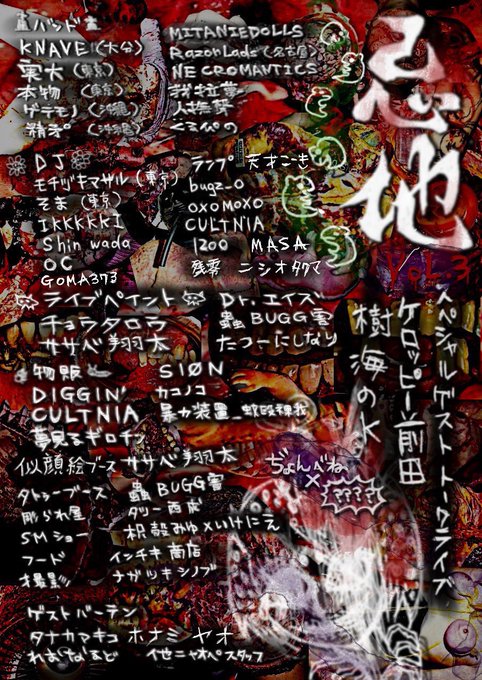 忌地
VoL.3
スペシャルゲストトークライブ
ケロッピー前田
樹海の水
バンド
KNAVE(大分)
東犬(東京)
本物(東京)
ゲテモノ(沖縄)
MITANIEDOLLS
RazorLads(名古屋)
NECROMANTICS
我拉葬
くるぴの
DJ
モチヅキマサル(東京)
そま(東京)
IKKKKKI
Shin wada
OC
GOMA373
ランプ 天才こーき
bugz_0
OXOMOXO
CULTNIA
1200 MASA
残雰 ニシオタクマ
ライブペイント
チョラタロウ
ササベ翔太
Dr.エイズ
蟲BUGG害
たつーにしなり
物販
DIGGIN'
CULTNIA
夢見るギロチン
SIØN
カコノコ
似顔絵ブース ササベ翔太
タトゥーブース 蟲BUGG害
彫られ屋 タリー西成
SMショー 机殻みゅ×いけにえ
フード インチキ商店
ナガツキシノブ
ぢょんべね
×
????
ゲストバーテン
タナカマキコ ホナミ ヤオ
れおなるど 他ニャオペスタッフ